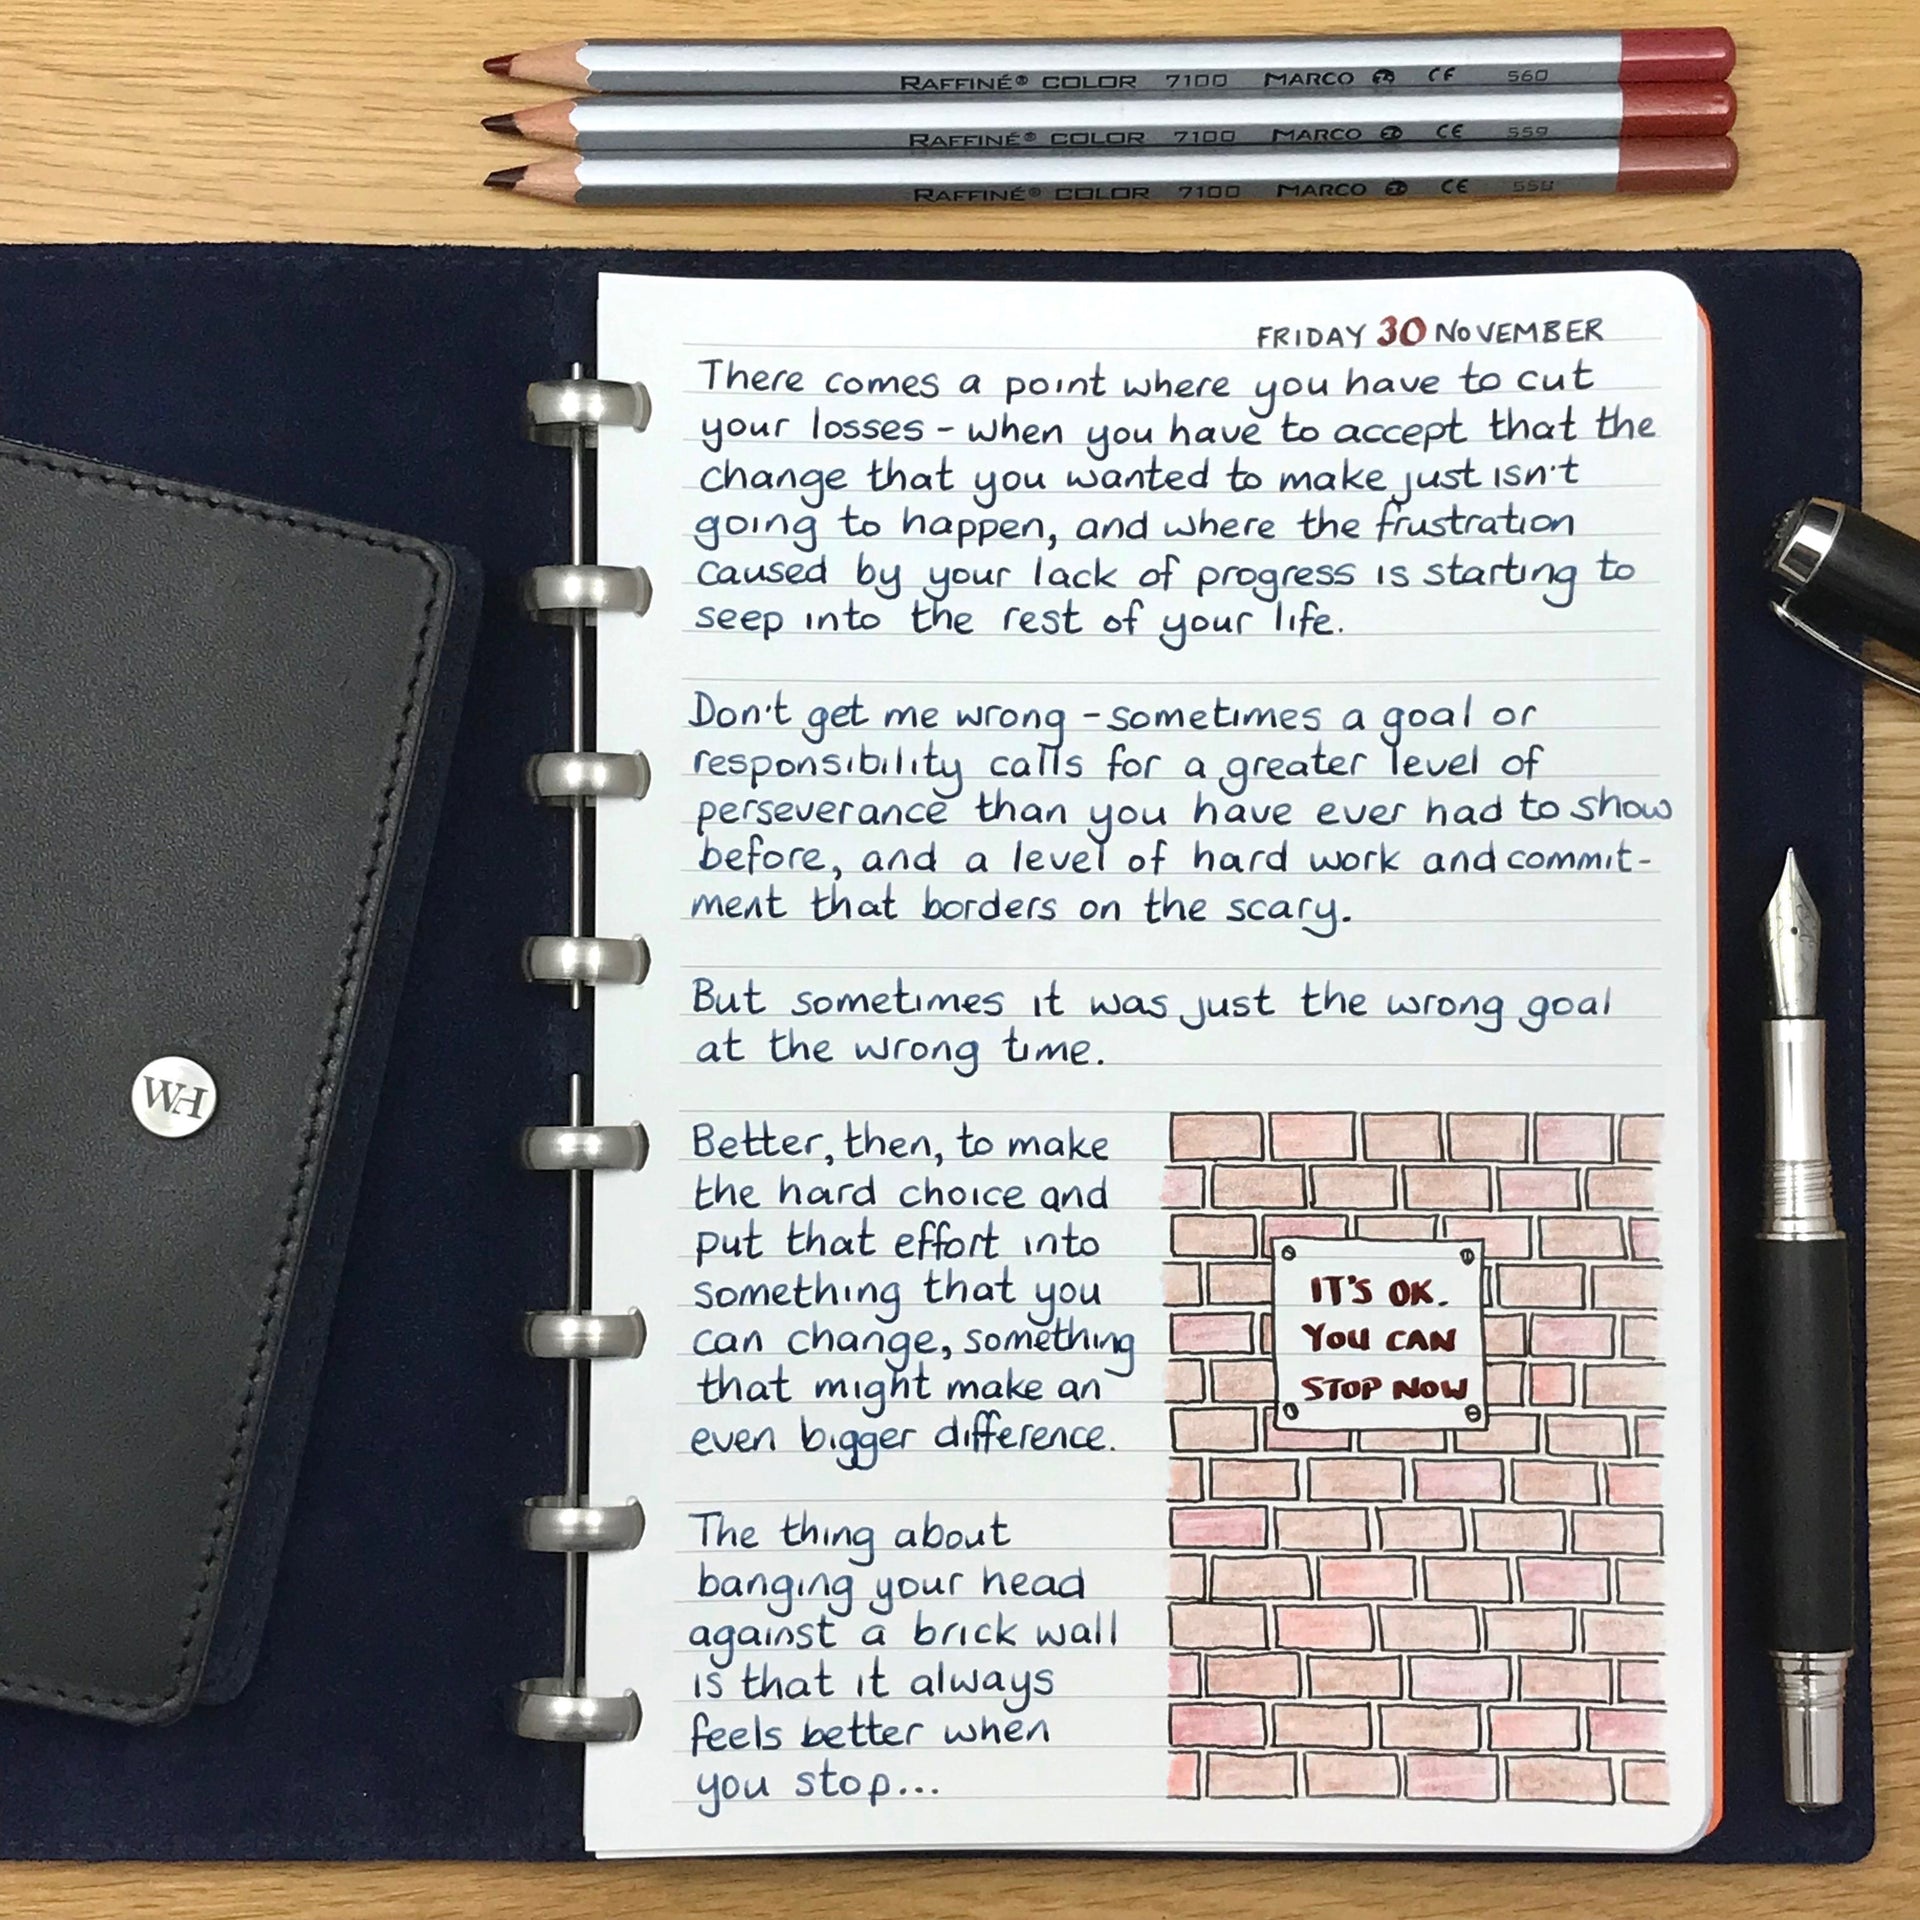 RAFFINÉ® COLOR 7100 MARCO CE 560
RAFFINÉ® COLOR 7100 MARCO CE 559
RAFFINÉ® COLOR 7100 MARCO CE 558
FRIDAY 30 NOVEMBER
There comes a point where you have to cut
your losses - when you have to accept that the
change that you wanted to make just isn't
going to happen, and where the frustration
caused by your lack of progress is starting to
seep into the rest of your life.
Don't get me wrong - sometimes a goal or
responsibility calls for a greater level of
perseverance than you have ever had to show
before, and a level of hard work and commit-
ment that borders on the scary.
But sometimes it was just the wrong goal
at the wrong time.
Better, then, to make
the hard choice and
put that effort into
something that you
can change, something
that might make an
even bigger difference.
The thing about
banging your head
against a brick wall
is that it always
feels better when
you stop...
IT'S OK.
YOU CAN
STOP NOW
WH